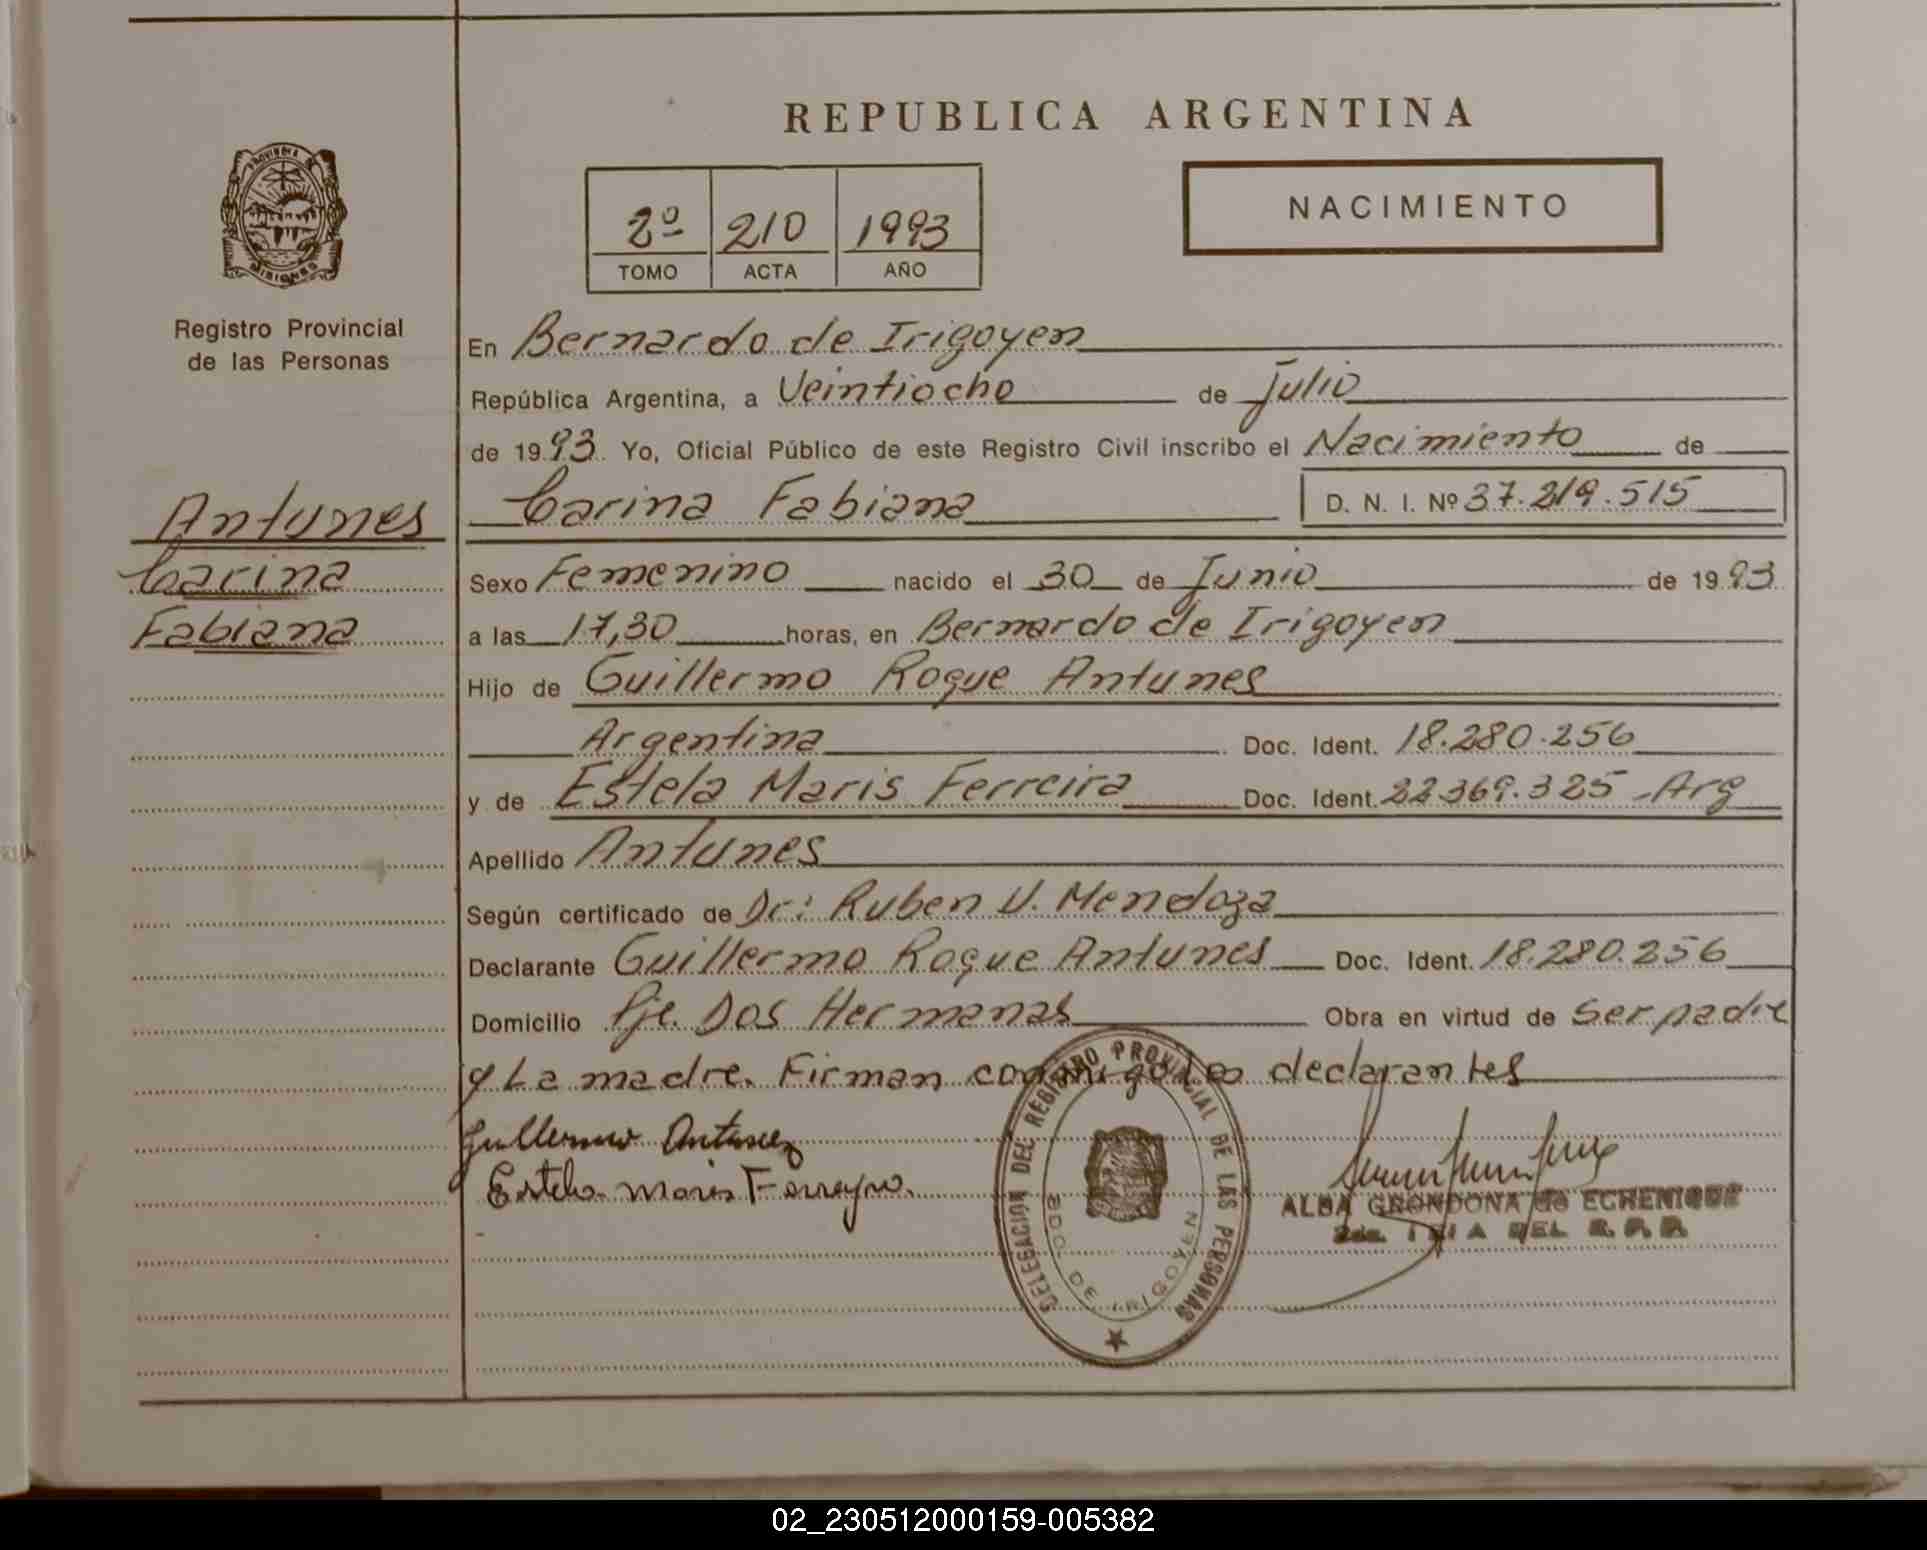 REPUBLICA ARGENTINA
PROVINCIA DE MISIONES
2º 210 1993
TOMO ACTA AÑO
NACIMIENTO
Registro Provincial
de las Personas
Antunes
Carina
Fabiana
En Bernardo de Irigoyen
República Argentina, a Veintiocho de Julio
de 1993. Yo, Oficial Público de este Registro Civil inscribo el Nacimiento de
Carina Fabiana D. N. I. Nº 37.219.515
Sexo Femenino nacido el 30 de Junio de 1993
a las 17,30 horas, en Bernardo de Irigoyen
Hijo de Guillermo Roque Antunes
Argentina Doc. Ident. 18.280.256
y de Estela Maris Ferreira Doc. Ident. 22369.325 - Arg
Apellido Antunes
Según certificado de Dr: Ruben V. Mendoza
Declarante Guillermo Roque Antunes Doc. Ident. 18.280.256
Domicilio Pje. Dos Hermanas Obra en virtud de Ser padre
y La madre. Firman conmigo los declarantes
Guillermo Antunez
Estela Maris Ferreyra.
DELEGACION DEL REGISTRO PROVINCIAL DE LAS PERSONAS
BDO. DE IRIGOYEN
ALBA GRONDONA de ECHENIQUE
DEL R. P. P.
02_230512000159-005382